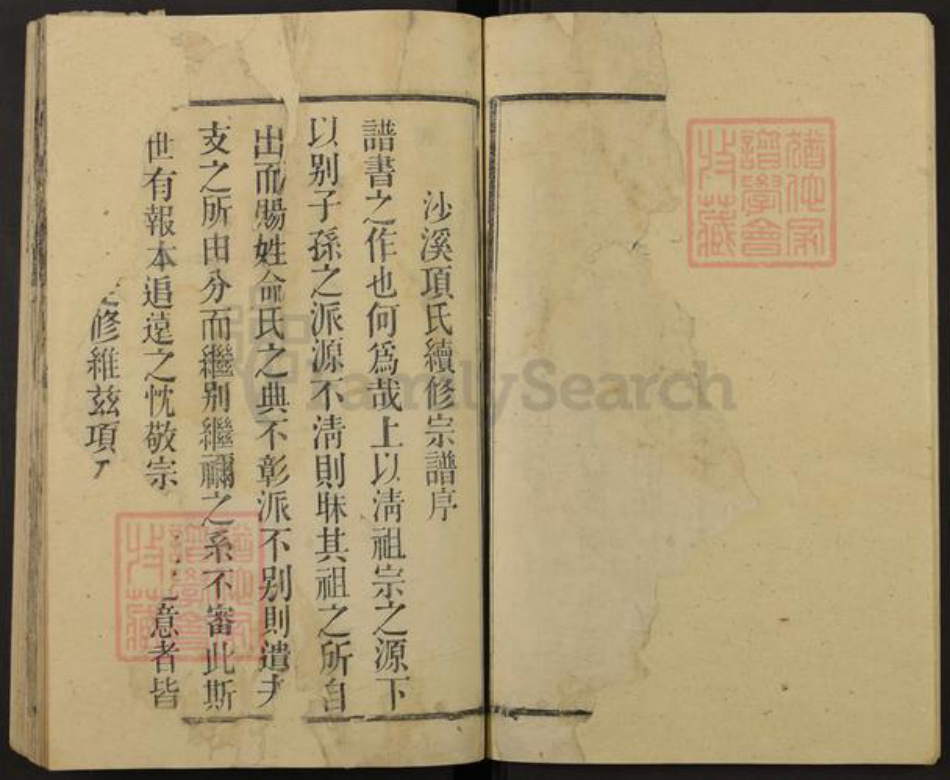 沙溪項氏續修宗譜序
譜書之作也何爲哉上以清祖宗之源下
以别子孫之派源不清則昧其祖之所自
出而賜姓命氏之典不彰派不别則遺夫
支之所由分而繼别繼禰之系不審此斯
世有報本追遠之忱敬宗意者皆
修維兹項
FamilySearch
譜學會
收藏
譜學會
收藏